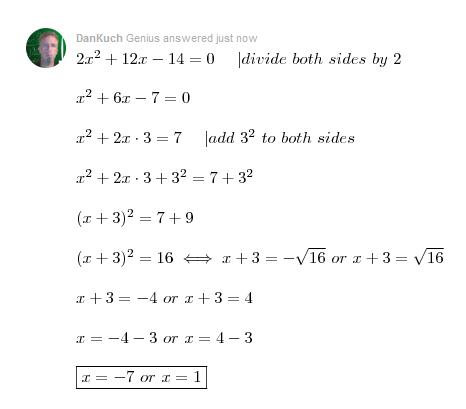 DanKuch Genius answered just now
2x² + 12x − 14 = 0 |divide both sides by 2
x² + 6x − 7 = 0
x² + 2x · 3 = 7 |add 3² to both sides
x² + 2x · 3 + 3² = 7 + 3²
(x + 3)² = 7 + 9
(x + 3)² = 16 ⟺ x + 3 = −√16 or x + 3 = √16
x + 3 = −4 or x + 3 = 4
x = −4 − 3 or x = 4 − 3
x = −7 or x = 1